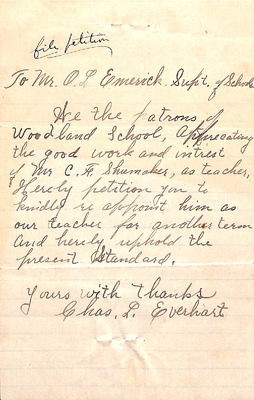 file petition
To Mr. O. L. Emerick. Supt. of Schools
We the patrons of
Woodland School, Apprecating
the good work and intrest
of Mr C. F. Shumaker, as teacher,
Hereby petition you to
kindly re appoint him as
our teacher for another term
and hereby uphold the
present Standard.
Yours with thanks
Chas. L. Everhart